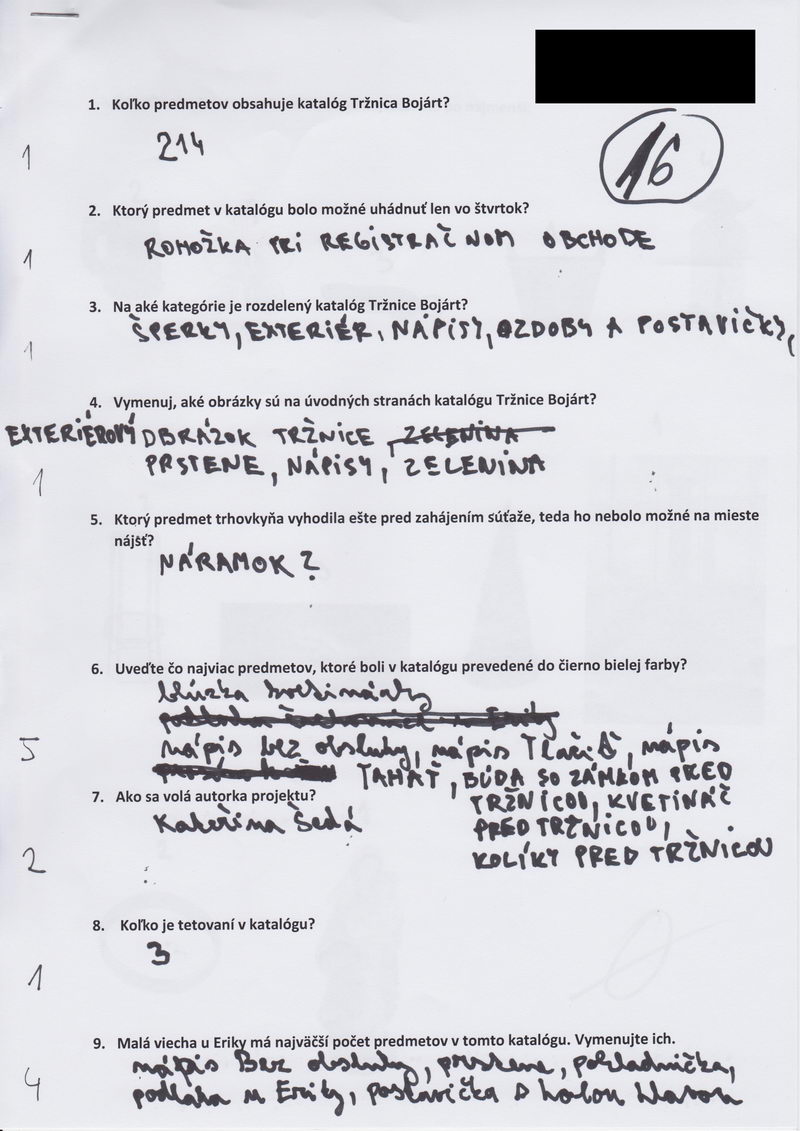 1. Koľko predmetov obsahuje katalóg Tržnica Bojárt?
214
1
16
2. Ktorý predmet v katalógu bolo možné uhádnuť len vo štvrtok?
ROHOŽKA PRI REGISTRAČNOM OBCHODE
1
3. Na aké kategórie je rozdelený katalóg Tržnice Bojárt?
ŠPERKY, EXTERIÉR, NÁPISY, OZDOBY A POSTAVIČKY,
1
4. Vymenuj, aké obrázky sú na úvodných stranách katalógu Tržnice Bojárt?
EXTERIÉROVÝ OBRÁZOK TRŽNICE, ZELENINA
PRSTENE, NÁPISY, ZELENINA
1
5. Ktorý predmet trhovkyňa vyhodila ešte pred zahájením súťaže, teda ho nebolo možné na mieste
nájšť?
NÁRAMOK?
6. Uveďte čo najviac predmetov, ktoré boli v katalógu prevedené do čierno bielej farby?
blúzka
nápis bez obsluhy, nápis Tlačiť, nápis
5
ŤAHAŤ, BÚDA SO ZÁMKOM PRED
7. Ako sa volá autorka projektu?
TRŽNICOU, KVETINÁČ
Kateřina Šedá
PRED TRŽNICOU,
KOLÍKY PRED TRŽNICOU
2
8. Koľko je tetovaní v katalógu?
3
1
9. Malá viecha u Eriky má najväčší počet predmetov v tomto katalógu. Vymenujte ich.
nápis Bez obsluhy, prstene, pokladnička,
podlaha u Eriky, postavička s holou hlavou
4